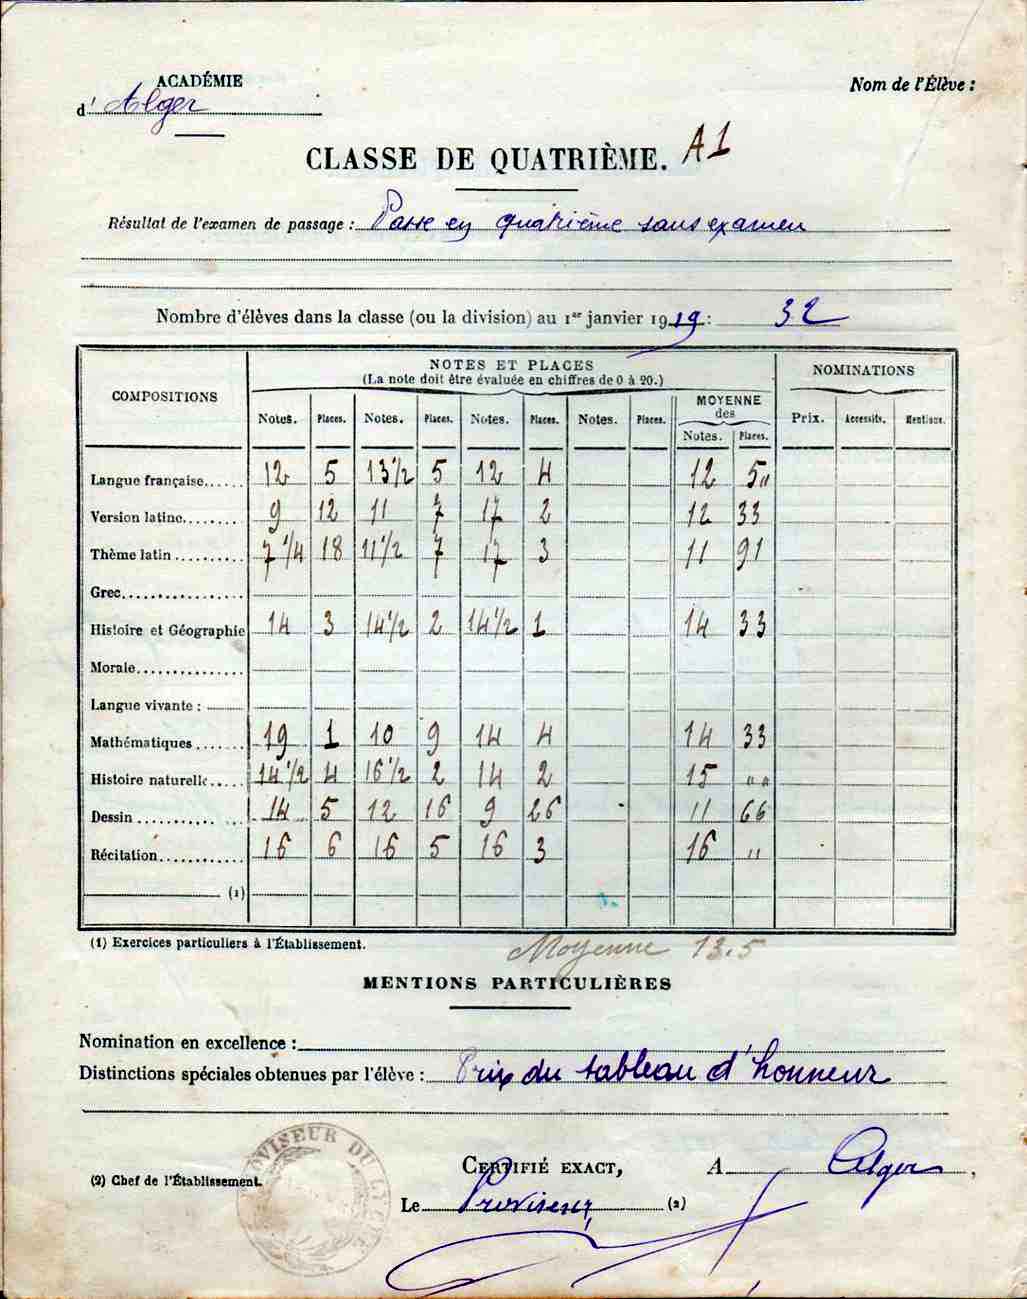 ACADÉMIE
d' Alger
Nom de l'Élève :
CLASSE DE QUATRIÈME. A1
Résultat de l'examen de passage : Passe en quatrième sans examen
Nombre d'élèves dans la classe (ou la division) au 1er janvier 1919 : 32
COMPOSITIONS
NOTES ET PLACES
(La note doit être évaluée en chiffres de 0 à 20.)
NOMINATIONS
MOYENNE
des
Notes. Places. Notes. Places. Notes. Places. Notes. Places. Notes. Places. Prix. Accessits. Mentions.
Langue française...... 12 5 13 1/2 5 12 4 12 5 "
Version latine........ 9 12 11 7 17 2 12 33
Thème latin ......... 7 1/4 18 11 1/2 7 17 3 11 91
Grec................
Histoire et Géographie 14 3 14 1/2 2 14 1/2 1 14 33
Morale...............
Langue vivante :
Mathématiques ....... 19 1 10 9 14 4 14 33
Histoire naturelle..... 14 1/2 4 16 1/2 2 14 2 15 " "
Dessin ........... 14 5 12 16 9 26 11 66
Récitation............ 16 6 16 5 16 3 16 "
(1)
(1) Exercices particuliers à l'Établissement.
Moyenne 13.5
MENTIONS PARTICULIÈRES
Nomination en excellence :
Distinctions spéciales obtenues par l'élève : Prix du tableau d'honneur
PROVISEUR DU LYCÉE
CERTIFIÉ EXACT, A Alger,
(2) Chef de l'Établissement.
Le Proviseur, (2)